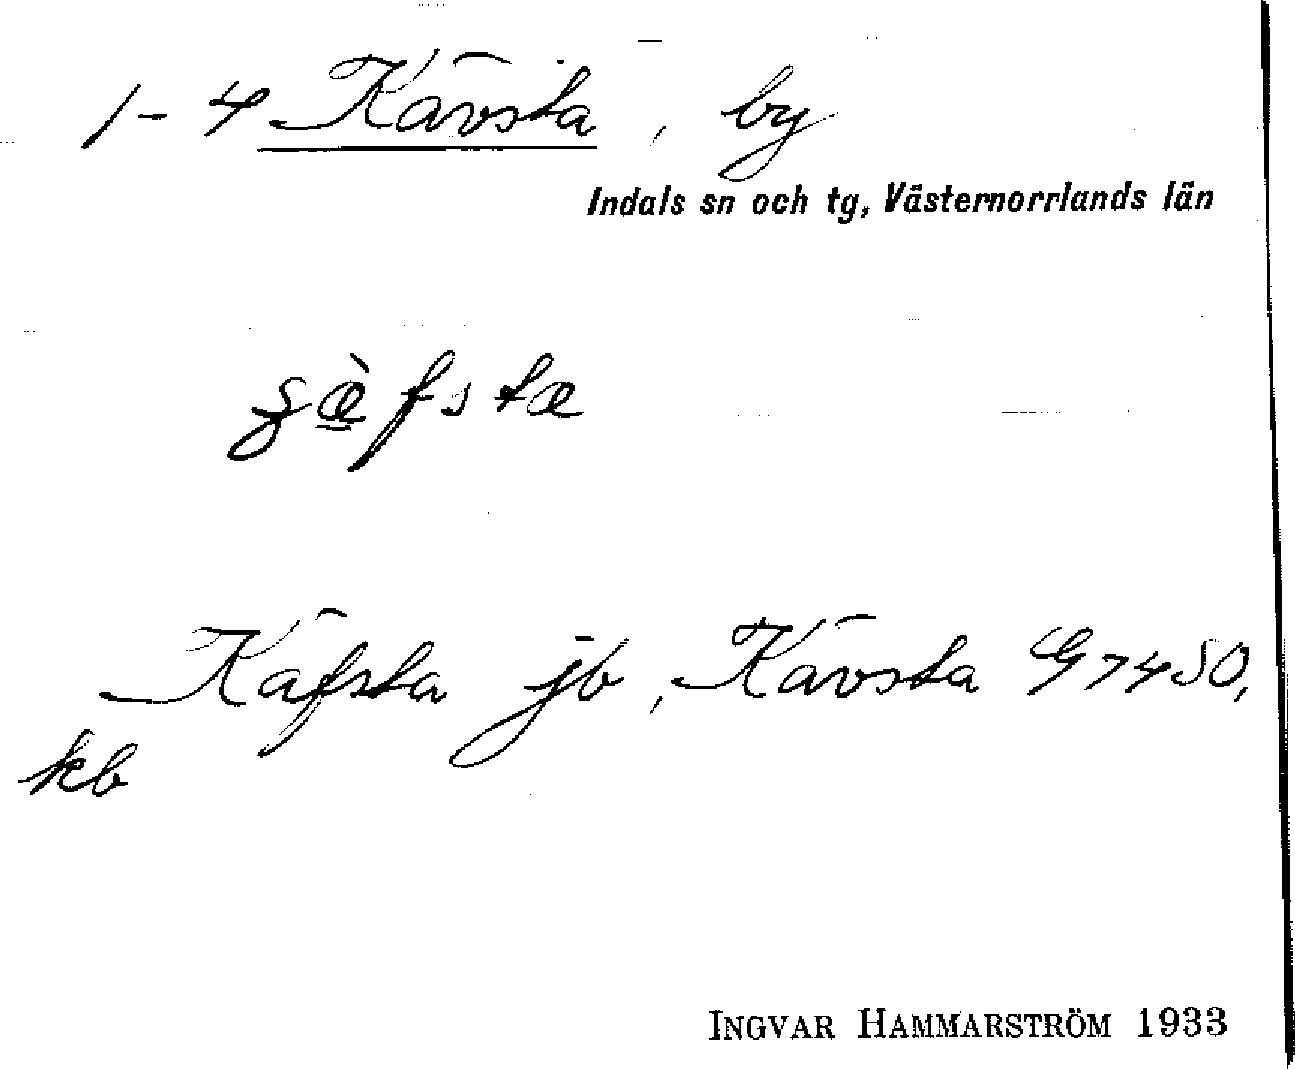 1-4 Kävsta, by
Indals sn och tg, Västernorrlands län
Käfsta jb, Kävsta G7450,
kb
INGVAR HAMMARSTRÖM 1933